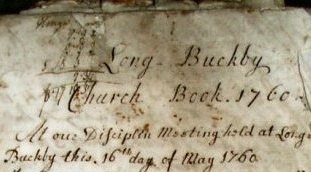 Long-Buckby
Church Book. 1760
At our Disciplin Meeting held at Long
Buckby this. 16th day of May 1760